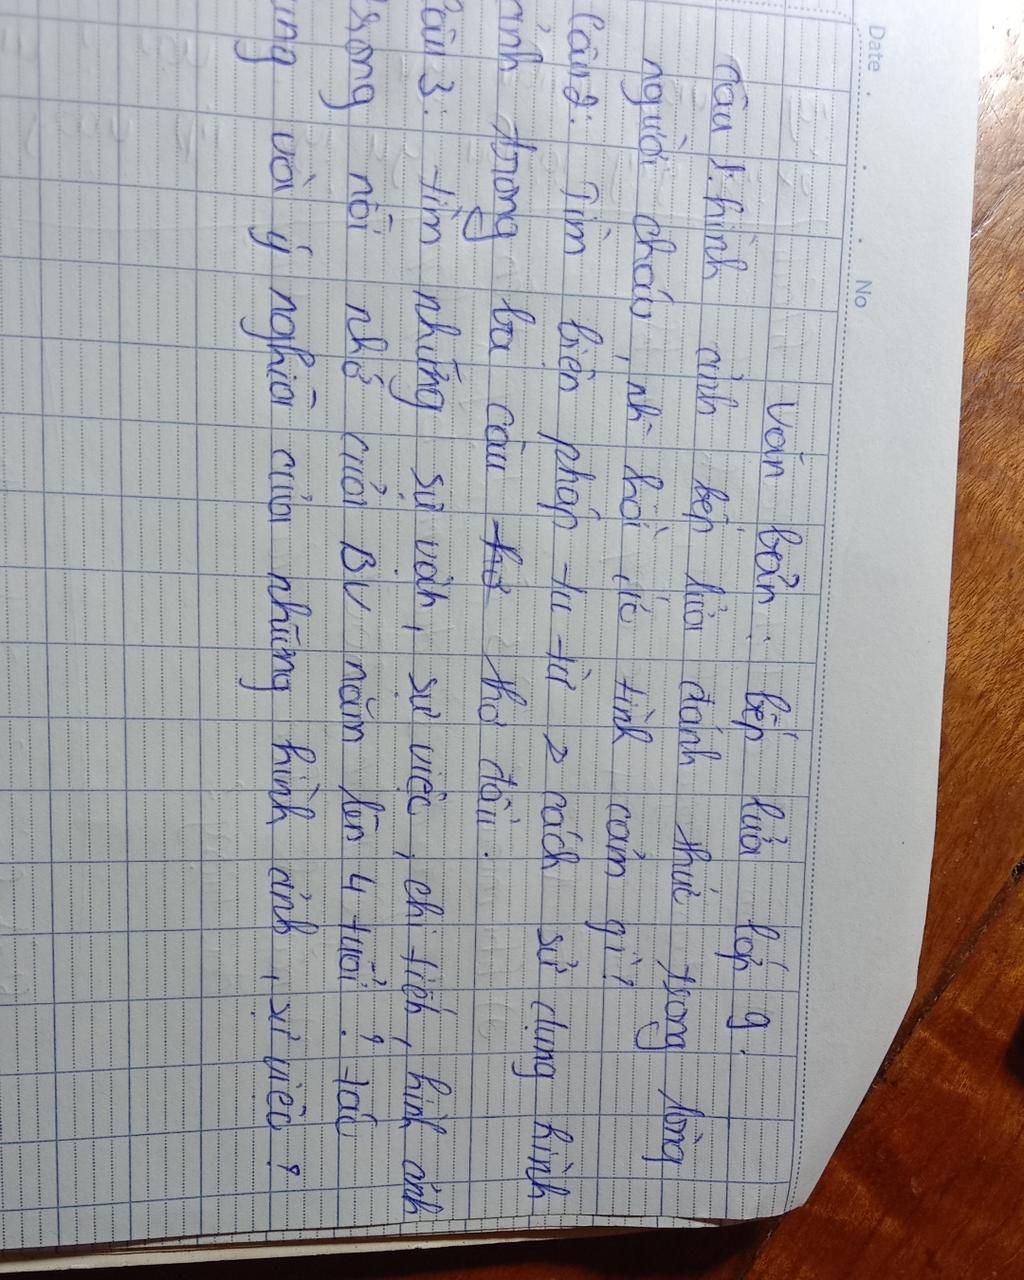 Date.
No
Văn bản: bếp lửa lớp 9.
Câu 1. hình ảnh bếp lửa đánh thức trong lòng
người cháu, nh hồi ức tình cảm gì?
Câu 2. Tìm biện pháp tu từ 2 cách sử dụng hình
ảnh trong ba câu thơ thơ đầu.
Câu 3. tìm những sự vật, sự việc, chi tiết, hình ảnh
trong nỗi nhớ của BV năm lên 4 tuổi? tác
dụng và ý nghĩa của những hình ảnh, sự việc?